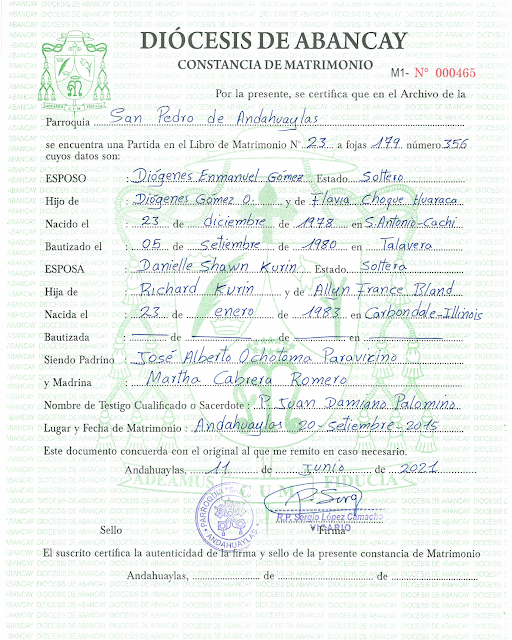 DIÓCESIS DE ABANCAY
CONSTANCIA DE MATRIMONIO
M1- Nº 000465
Por la presente, se certifica que en el Archivo de la
Parroquia San Pedro de Andahuaylas
se encuentra una Partida en el Libro de Matrimonio Nº 23 a fojas 179 número 356
cuyos datos son:
ESPOSO : Diógenes Enmanuel Gómez Estado Soltero
Hijo de : Diógenes Gómez O. y de Flavia Choque Huaraca
Nacido el : 23 de diciembre de 1978 en S. Antonio-Cachi
Bautizado el : 05 de setiembre de 1980 en Talavera
ESPOSA : Danielle Shawn Kurin Estado Soltera
Hija de : Richard Kurin y de Allyn France Bland
Nacida el : 23 de enero de 1983 en Carbondale-Illinois
Bautizada : de de en
Siendo Padrino : José Alberto Ochotoma Paravicino
y Madrina : Martha Cabrera Romero
Nombre de Testigo Cualificado o Sacerdote : P. Juan Damiano Palomino
Lugar y Fecha de Matrimonio : Andahuaylas 20-Setiembre-2015
Este documento concuerda con el original al que me remito en caso necesario.
Andahuaylas, 11 de junio de 2021
ADEAMUS CUM FIDUCIA
PARROQUIA
ANDAHUAYLAS
R.P. Sergio López Camacho
VICARIO
Sello Firma
El suscrito certifica la autenticidad de la firma y sello de la presente constancia de Matrimonio
Andahuaylas, de de